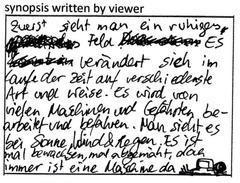 synopsis written by viewer
Zuerst sieht man ein ruhiges
Feld Es
verändert sich im
Laufe der Zeit auf verschiedenste
Art und Weise. Es wird von
vielen Maschinen und Gefährten be-
arbeitet und befahren. Man sieht es
bei Sonne, Wind & Regen. Es ist
mal bewachsen, mal abgemäht, doch
immer ist eine Maschine da